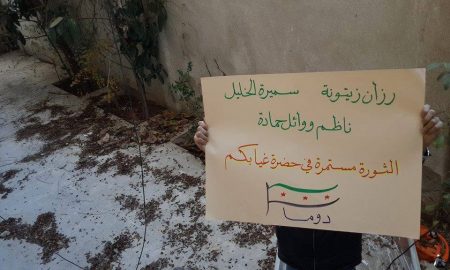 رزان زيتونة سميرة الخليل
ناظم ووائل حمادة
الثورة مستمرة في حضرة غيابكم
دوما